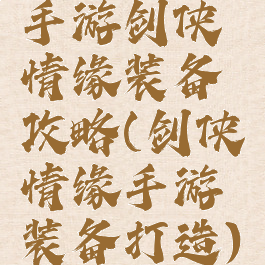 手游剑侠
情缘装备
攻略(剑侠
情缘手游
装备打造)